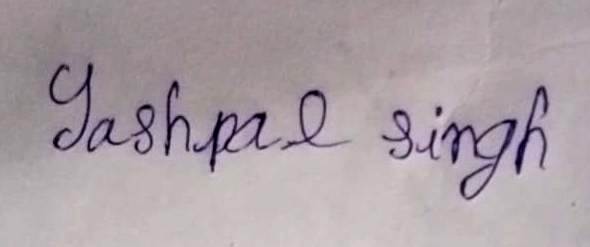 Yashpal singh